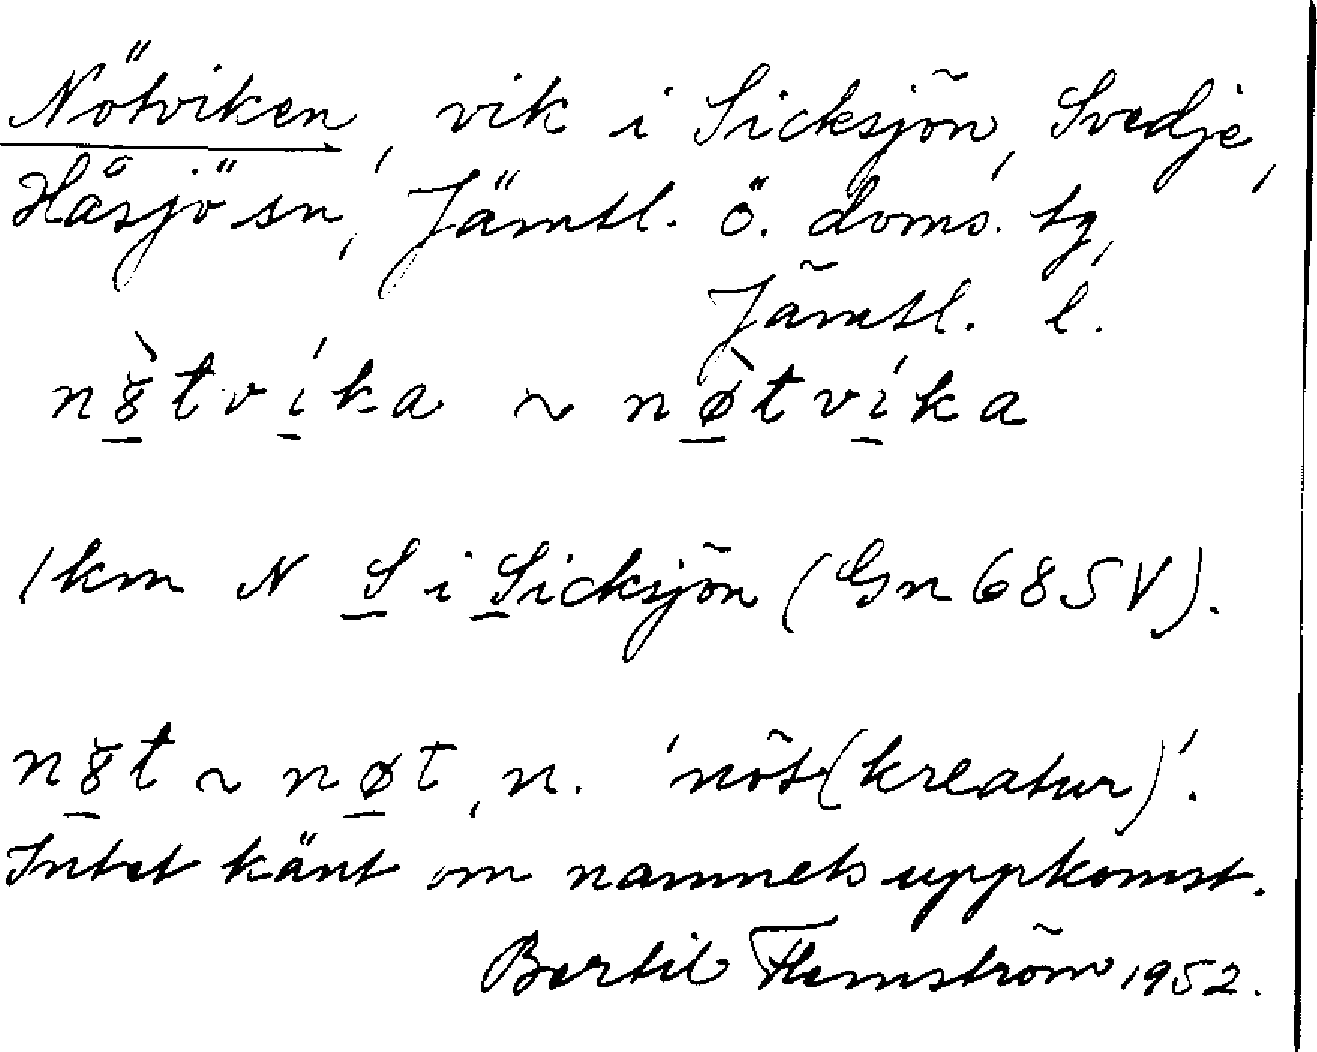 Nötviken, vik i Sicksjön, Svedje,
Håsjö sn, Jämtl. ö. doms. tg,
Jämtl. l.
nȣ̀tvíka ~ nø̀tvíka
1 km N S i Sicksjön (Gn 68 SV).
nȣt ~ nøt, n. 'nöt(kreatur)'.
Intet känt om namnets uppkomst.
Bertil Flemström 1952.